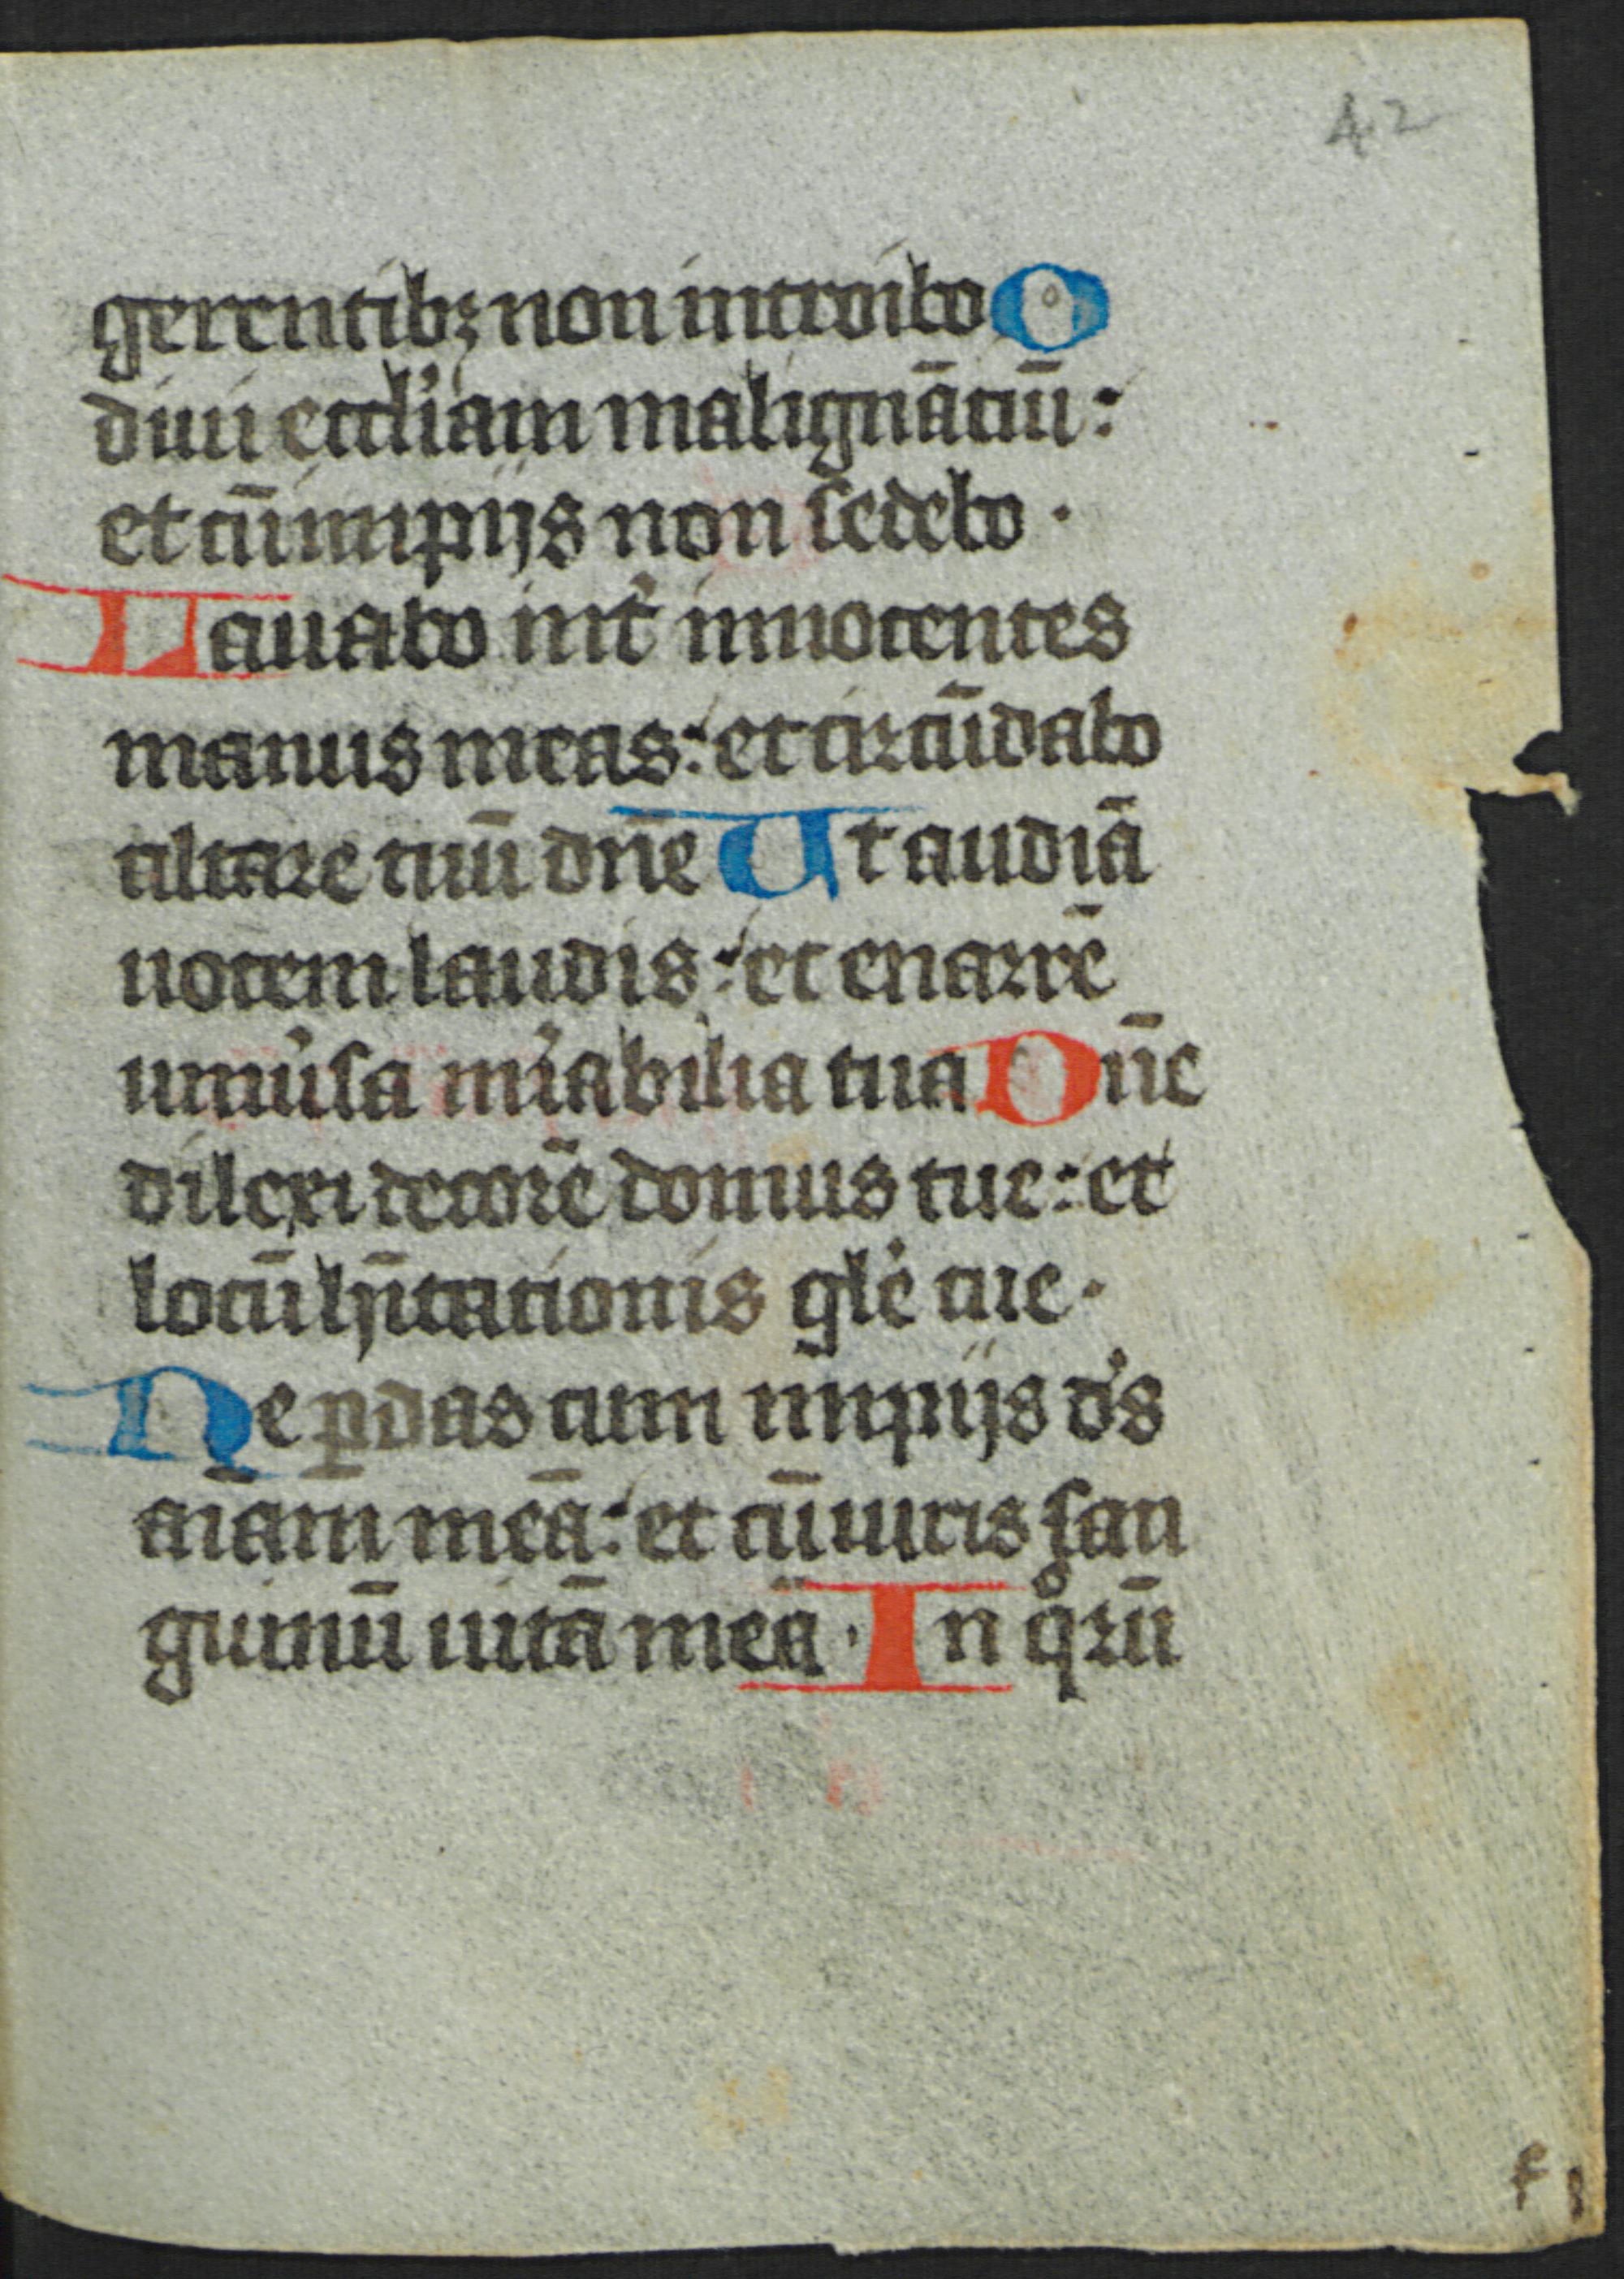 42
gerentibꝫ non introibo O
diui eccl'iam malignāciū :
et cū impijs non sedebo .
Lauabo int᷑ innocentes
manus meas : et circūdabo
altare tuū dn̄e Ut audiā
uocem laudis : et enarrē
uniu'sa mi'abilia tua Dn̄e
dilexi decorē domus tue : et
locū hītacionis gl'e tue .
Ne ꝑdas cum impijs d's
aīam meā : et cū uiris san
guinū uitā meā . In qͦrū
f